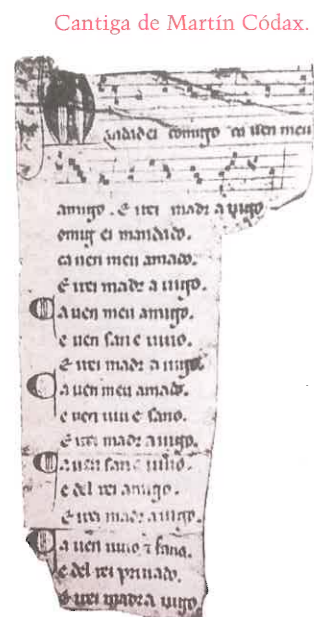 Cantiga de Martín Códax.
Mandad ei comigo ca uen meu
amigo. E irei madr a uigo
Comig ei mandado.
ca uen meu amado.
E irei madr a uigo.
Ca uen meu amigo.
e uen san e uiuo.
E irei madr a uigo.
Ca uen meu amado.
e uen uiu e sano.
E irei madr a uigo.
Ca uen san e uiuo.
e del rei amigo.
E irei madr a uigo.
Ca uen uiuo e sano.
e del rei priuado.
E irei madr a uigo.